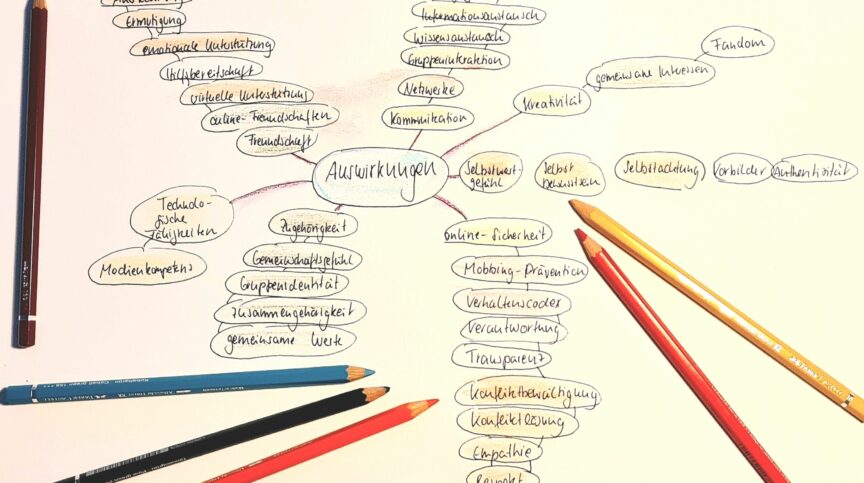 Ermutigung
emotionale Unterstützung
Hilfsbereitschaft
virtuelle Unterstützung
online-Freundschaften
Freundschaft
Informationsaustausch
Wissensaustausch
Gruppeninteraktion
Netzwerke
Kommunikation
Fandom
gemeinsame Interessen
Kreativität
Auswirkungen
Selbstwert-
gefühl
Selbst
bewusstsein
Selbstachtung
Vorbilder
Authentizität
Technolo-
gische
Fähigkeiten
Medienkompetenz
Zugehörigkeit
Gemeinschaftsgefühl
Gruppenidentität
Zusammengehörigkeit
gemeinsame Werte
online-Sicherheit
Mobbing-Prävention
Verhaltenscodex
Verantwortung
Transparenz
Konfliktbewältigung
Konfliktlösung
Empathie
Respekt